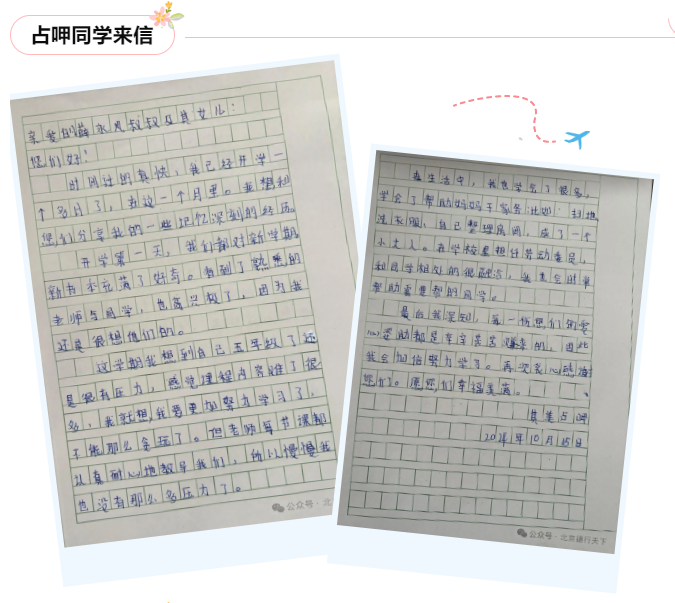 占呷同学来信
亲爱的薛永忠叔叔及其女儿：
您们好！
时间过的真快，我已经开学一
个多月了，在这一个月里。我想和
您们分享我的一些记忆深刻的经历。
开学第一天，我们都对新学期
新书本充满了好奇。看到了熟悉的
老师与同学，也高兴极了，因为我
还真很想他们的。
这学期我想到自己五年级了还
是很有压力，感觉课程内容难了很
多，我就想，我要更加努力学习了，
不能那么贪玩了。但老师每节课都
认真耐心地教导我们，所以慢慢我
也没有那么多压力了。
公众号·北京
在生活中，我也学会了很多，
学会了帮助妈妈干家务比如：扫地
洗衣服，自己整理房间，成了一个
小大人。在学校里担任劳动委员，
和同学相处的很融洽，我也会时常
帮助需要帮的同学。
最后我深知，每一份您们的爱
心资助都是辛辛苦苦赚来的，因此
我会加倍努力学习。再次衷心感谢
您们。愿您们幸福美满。
占呷
2024年10月15日
公众号·北京通行天下